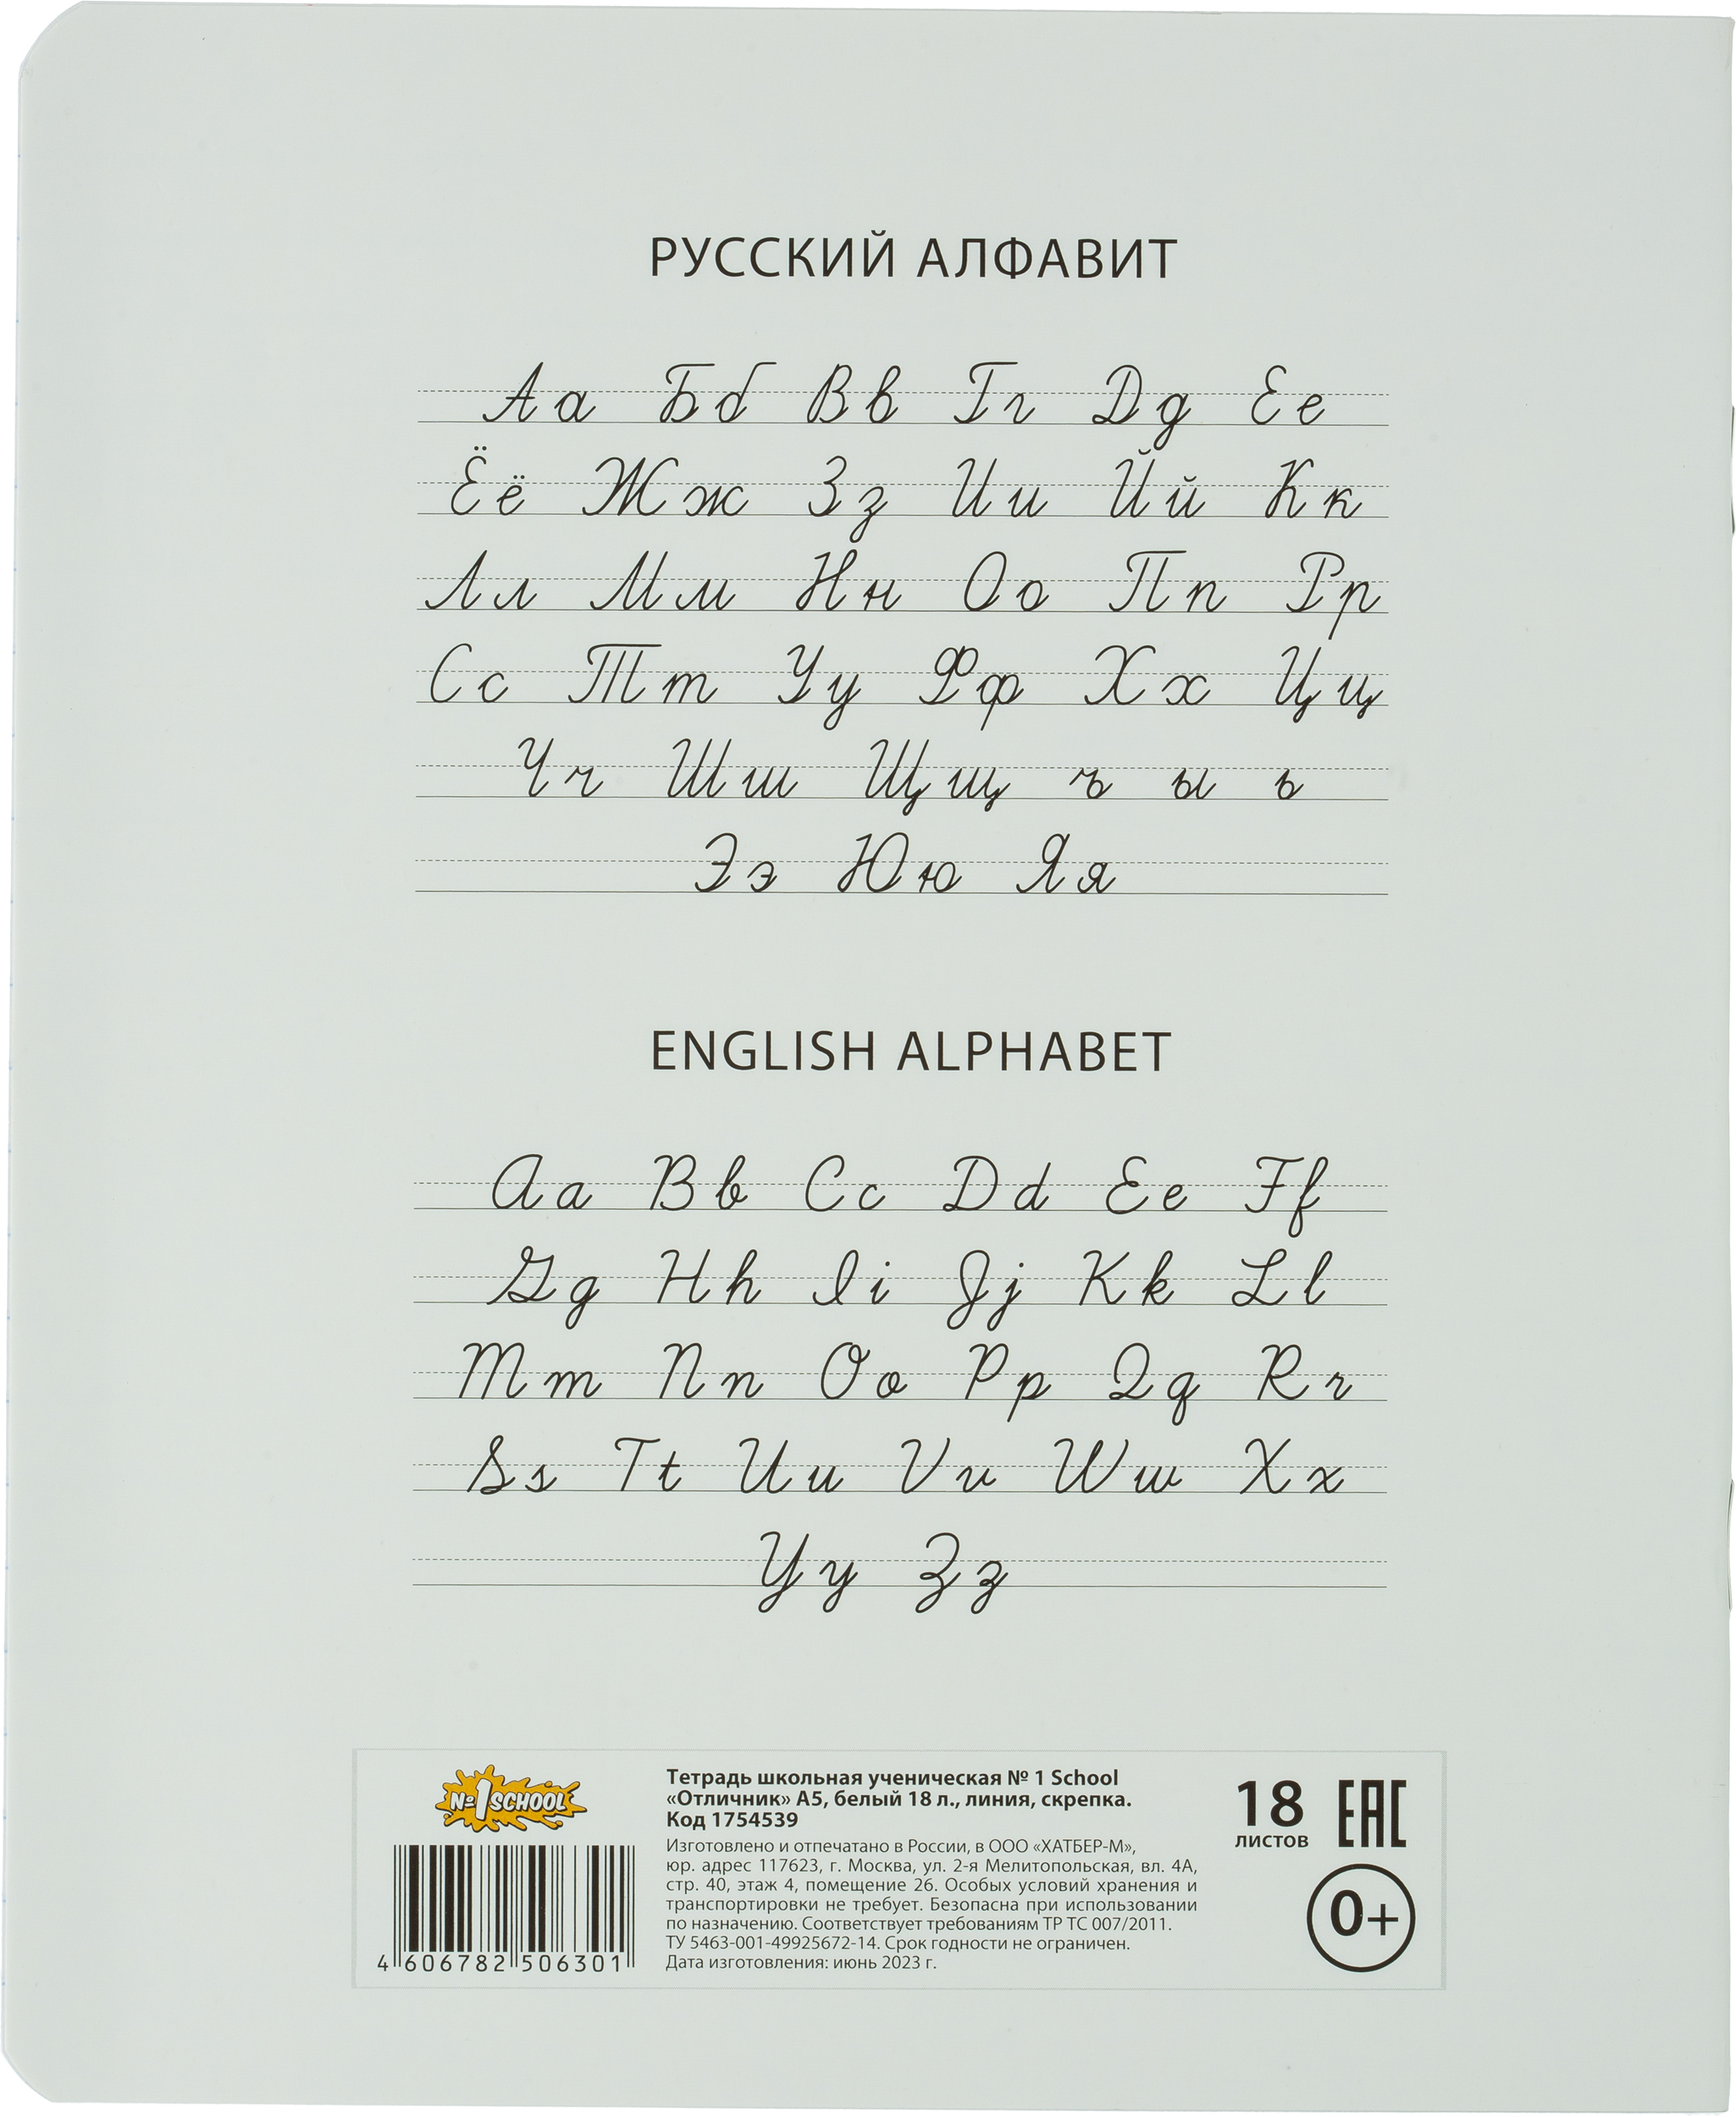 РУССКИЙ АЛФАВИТ
Аа Бб Вв Гг Дд Ее
Ёё Жж Зз Ии Йй Кк
Лл Мм Нн Оо Пп Рр
Сс Тт Уу Фф Хх Цц
Чч Шш Щщ ъ ы ь
Ээ Юю Яя
ENGLISH ALPHABET
Aa Bb Cc Dd Ee Ff
Gg Hh Ii Jj Kk Ll
Mm Nn Oo Pp Qq Rr
Ss Tt Uu Vv Ww Xx
Yy Zz
№1 SCHOOL
4 606782 506301
Тетрадь школьная ученическая № 1 School
«Отличник» А5, белый 18 л., линия, скрепка.
Код 1754539
Изготовлено и отпечатано в России, в ООО «ХАТБЕР-М»,
юр. адрес 117623, г. Москва, ул. 2-я Мелитопольская, вл. 4А,
стр. 40, этаж 4, помещение 26. Особых условий хранения и
транспортировки не требует. Безопасна при использовании
по назначению. Соответствует требованиям ТР ТС 007/2011.
ТУ 5463-001-49925672-14. Срок годности не ограничен.
Дата изготовления: июнь 2023 г.
18
листов
EAC
0+